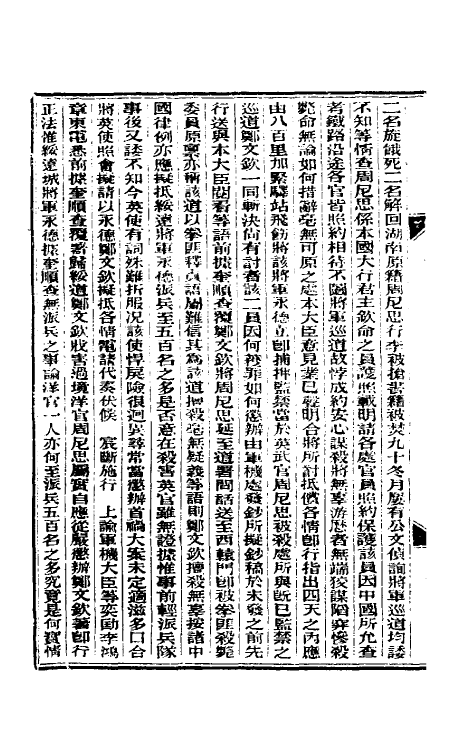 二名旋餓死二名解回湖南原籍周尼思行李被搶書籍被焚九十冬月屢有公文偵詢將軍巡道均諉
不知等情查周尼思係本國大行君主欽命之員護照載明請各處官員照約保護該員因中國所允查
者鐵路沿途各官皆照約相待不圖將軍巡道故悖成約安心謀殺將無辜游歷者無端狡謀陷穽慘殺
斃命無論如何措辭毫無可原之處本大臣意見業已聲明合將所討抵償各情卽行指出四天之內應
由八百里加緊驛站飛飭將該將軍永德立卽捕拏監禁當於英武官周尼思被殺處所與旣已監禁之
巡道鄭文欽一同斬決何有討者該二員因何獲罪如何懲辦由軍機處發鈔所擬鈔稿於未發之前先
行送與本大臣閱看等語前據奎順查覆鄭文欽將周尼思延至道署問話送至西轅門卽被拳匪殺斃
委員原稟亦稱該道以拳匪釋良語屬難信其為該道擅殺毫無疑義等語則鄭文欽擅殺無辜按諸中
國律例亦應擬抵綏遠將軍永德派兵至五百名之多是否意在殺害英官雖無證據惟事前輕派兵隊
事後又諉不知今英使有詞殊難折服况該使悍戾險很迥異尋常當懲辦首禍大案未定適滋多口台
將英使照會擬請以永德鄭文欽擬抵各情電請代奏伏候　宸斷施行　上諭軍機大臣等奕劻李鴻
章東電悉前據奎順查覆署歸綏道鄭文欽戕害過境洋官周尼思屬實自應從嚴懲辦鄭文欽著卽行
正法惟綏遠城將軍永德據奎順查無派兵之事論洋官一人亦何至派兵五百名之多究竟是何實情